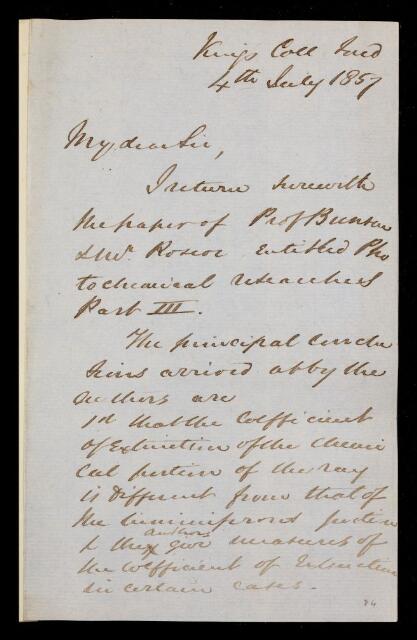 Kings Coll Lond
4th July 1857
My dear Sir,
I return herewith
the paper of Prof Bunsen
& Mr. Roscoe entitled Pho
tochemical researches
Part III.
The principal conclu
sions arrived at by the
authors are
1st that the Coefficient
of Extinction of the chemi
cal portion of the ray
is different from that of
the luminiferous portion
& they give measures of
authors
the Coefficient of Extinction
in certain cases.